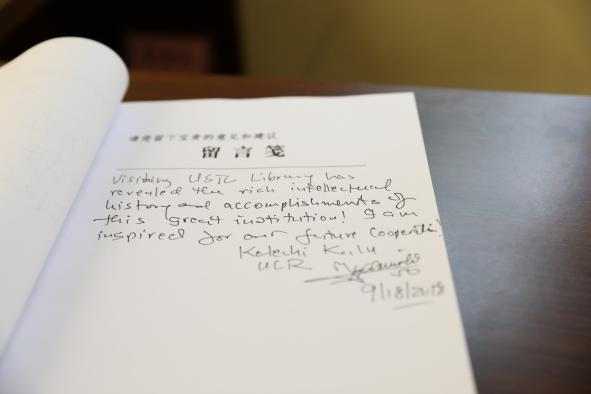 请您留下宝贵的意见和建议
留言笺
Visiting USTC Library has
revealed the rich intellectual
history and accomplishments of
this great institution! I am
inspired for our future cooperation!
UCR
9/18/2018